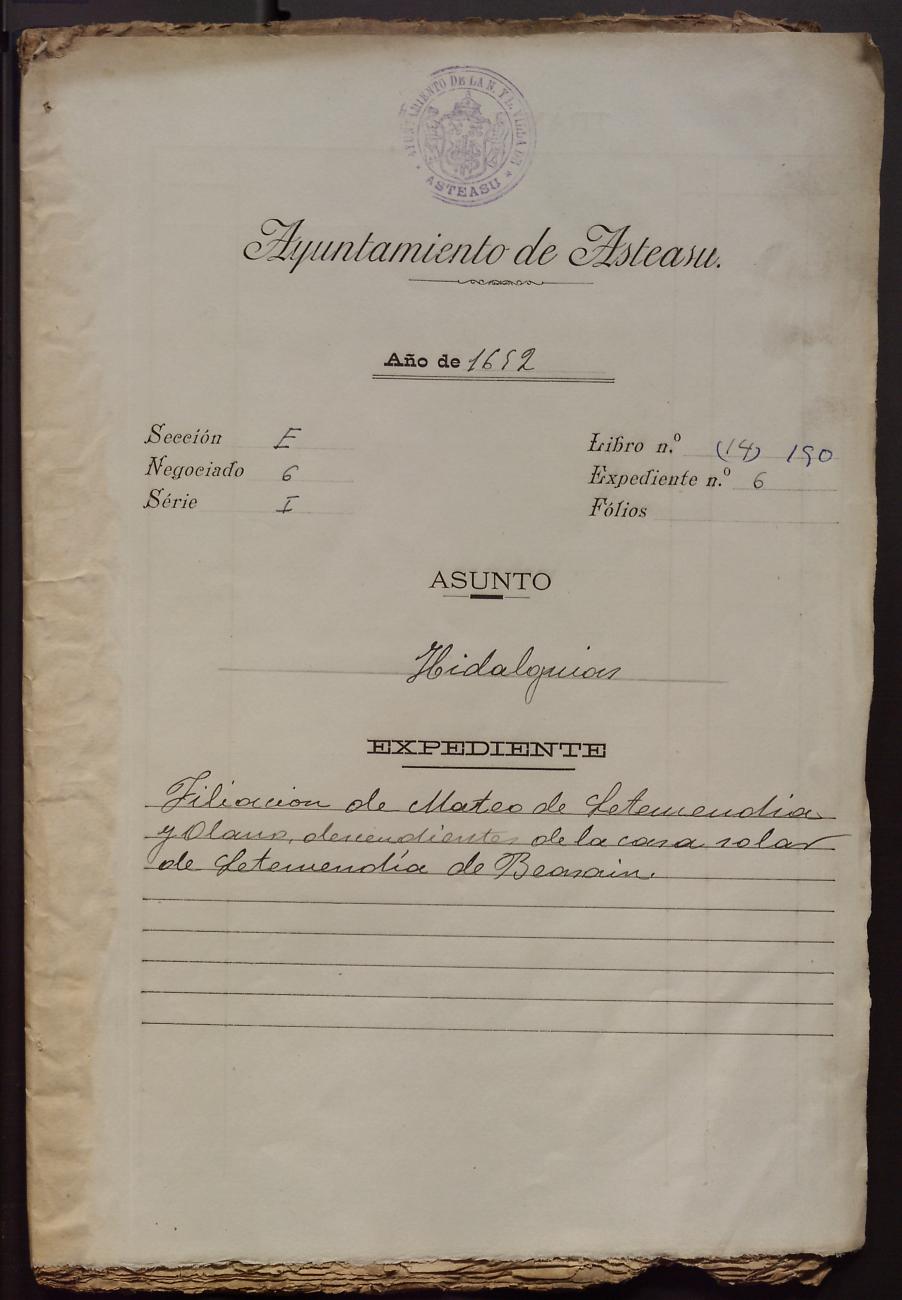 AYUNTAMIENTO DE LA N. Y L. VILLA DE
* ASTEASU *
Ayuntamiento de Asteasu.
Año de 1652
Sección E
Negociado 6
Série I
Libro n.º (14) 190
Expediente n.º 6
Fólios
ASUNTO
Hidalguias
EXPEDIENTE
Filiacion de Mateo de Letemendia
y Olano, descendientes de la casa solar
de Letemendía de Beasain.